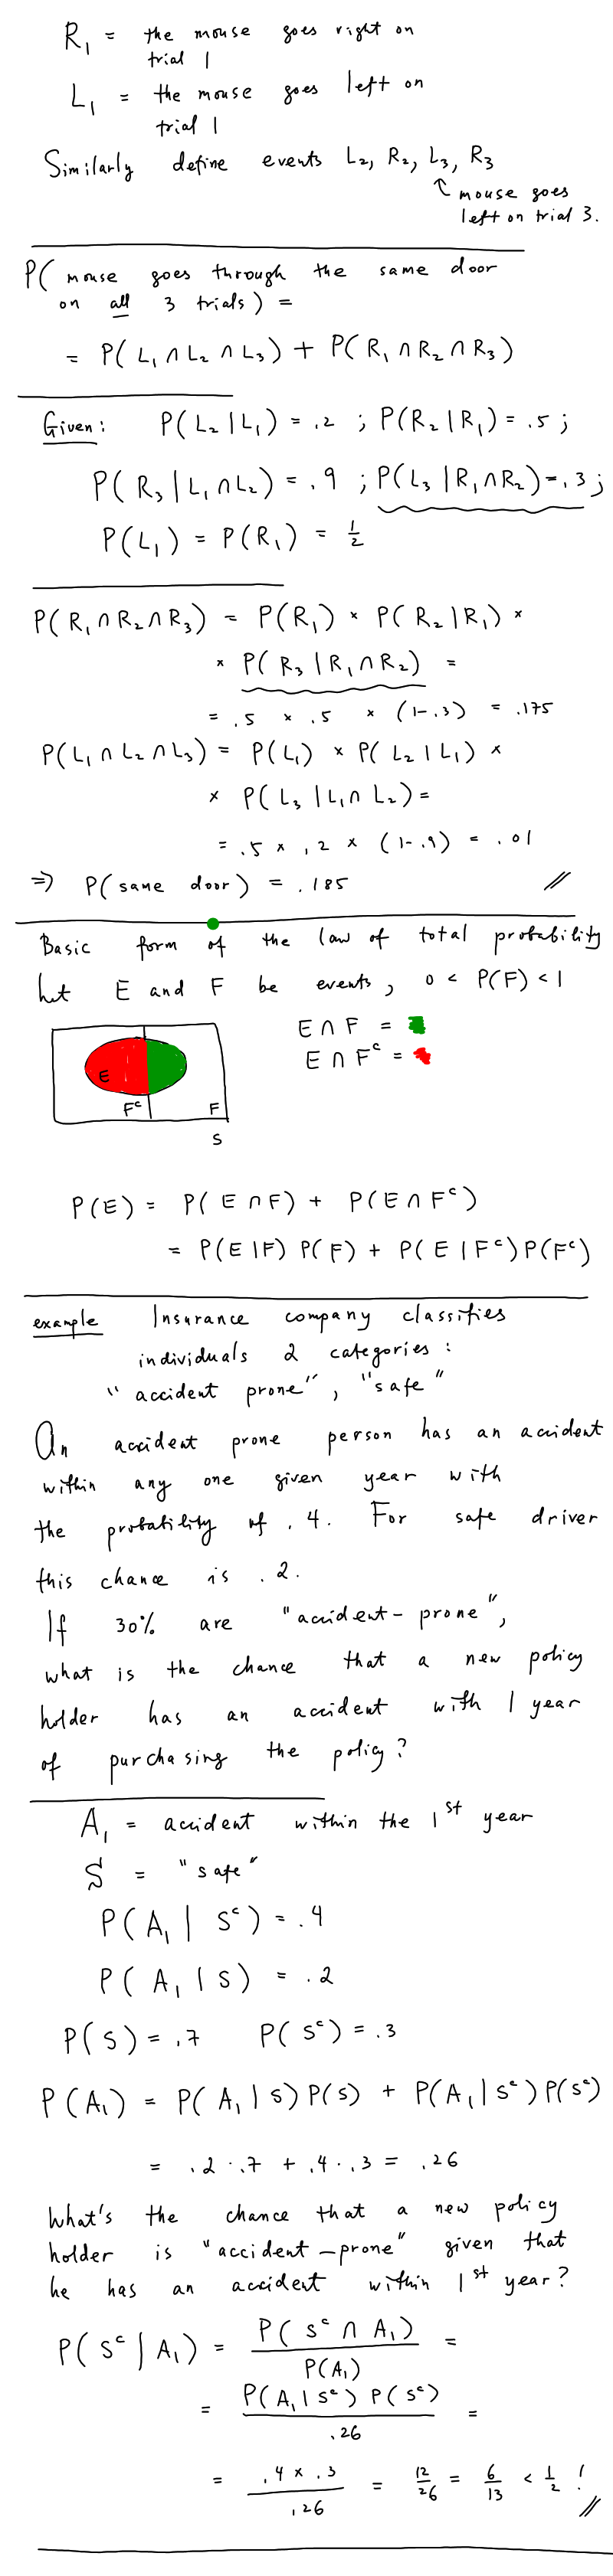 R₁ = the mouse goes right on
trial 1
L₁ = the mouse goes left on
trial 1
Similarly define events L₂, R₂, L₃, R₃
↑ mouse goes
left on trial 3.
P( mouse goes through the same door
on all 3 trials) =
= P( L₁ ∩ L₂ ∩ L₃) + P( R₁ ∩ R₂ ∩ R₃)
Given: P( L₂ | L₁) = .2 ; P(R₂ | R₁) = .5 ;
P( R₃ | L₁ ∩ L₂) = .9 ; P(L₃ | R₁ ∩ R₂) = .3 ;
P(L₁) = P(R₁) = 1/2
P( R₁ ∩ R₂ ∩ R₃) = P(R₁) × P( R₂ | R₁) ×
× P( R₃ | R₁ ∩ R₂) =
= .5 × .5 × (1-.3) = .175
P( L₁ ∩ L₂ ∩ L₃) = P(L₁) × P( L₂ | L₁) ×
× P( L₃ | L₁ ∩ L₂) =
= .5 × .2 × (1-.9) = .01
⇒ P( same door) = .185 //
Basic form of the law of total probability
Let E and F be events, 0 < P(F) < 1
E ∩ F =
E ∩ Fᶜ =
E
Fᶜ F
S
P(E) = P( E ∩ F) + P( E ∩ Fᶜ)
= P(E | F) P(F) + P( E | Fᶜ) P(Fᶜ)
example Insurance company classifies
individuals 2 categories :
"accident prone", "safe"
An accident prone person has an accident
within any one given year with
the probability of .4. For safe driver
this chance is .2.
If 30% are "accident-prone",
what is the chance that a new policy
holder has an accident with 1 year
of purchasing the policy?
A₁ = accident within the 1st year
S = "safe"
P( A₁ | Sᶜ) = .4
P( A₁ | S) = .2
P( S) = .7 P( Sᶜ) = .3
P (A₁) = P( A₁ | S) P(S) + P(A₁ | Sᶜ) P(Sᶜ)
= .2 · .7 + .4 · .3 = .26
What's the chance that a new policy
holder is "accident-prone" given that
he has an accident within 1st year?
P( Sᶜ | A₁) = P( Sᶜ ∩ A₁) / P(A₁) =
= P( A₁ | Sᶜ) P( Sᶜ) / .26 =
= .4 × .3 / .26 = 12/26 = 6/13 < 1/2 ! //